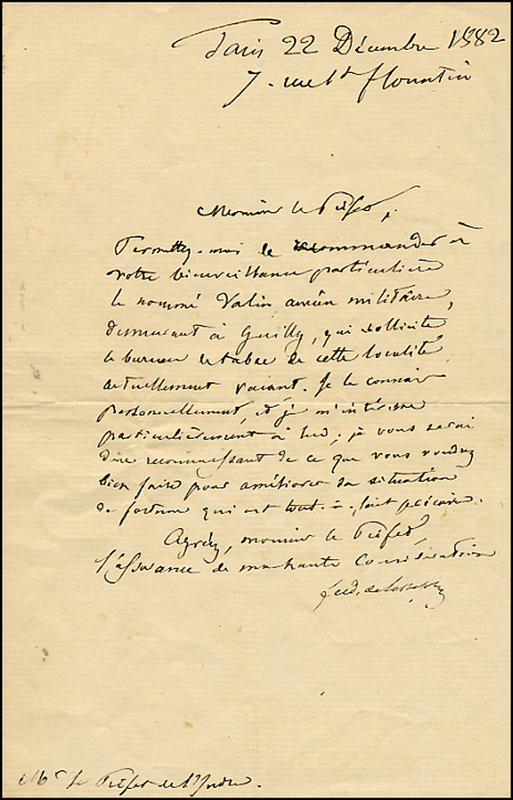 Paris 22 Décembre 1882
7. rue St florentin
Monsieur le Préfet,
Permettez-moi de recommander à
votre bienveillance particulière
le nommé Valin ancien militaire,
demeurant à Guilly, qui sollicite
le bureau de tabac de cette localité
actuellement vacant. Je le connais
personnellement, et je m'intéresse
particulièrement à lui; je vous serai
donc reconnaissant de ce que vous voudrez
bien faire pour améliorer sa situation
de fortune qui est tout-à-fait précaire.
Agréez, monsieur le Préfet,
l'assurance de ma haute considération
ferd. de Lesseps
Mr le Préfet de l'Indre.